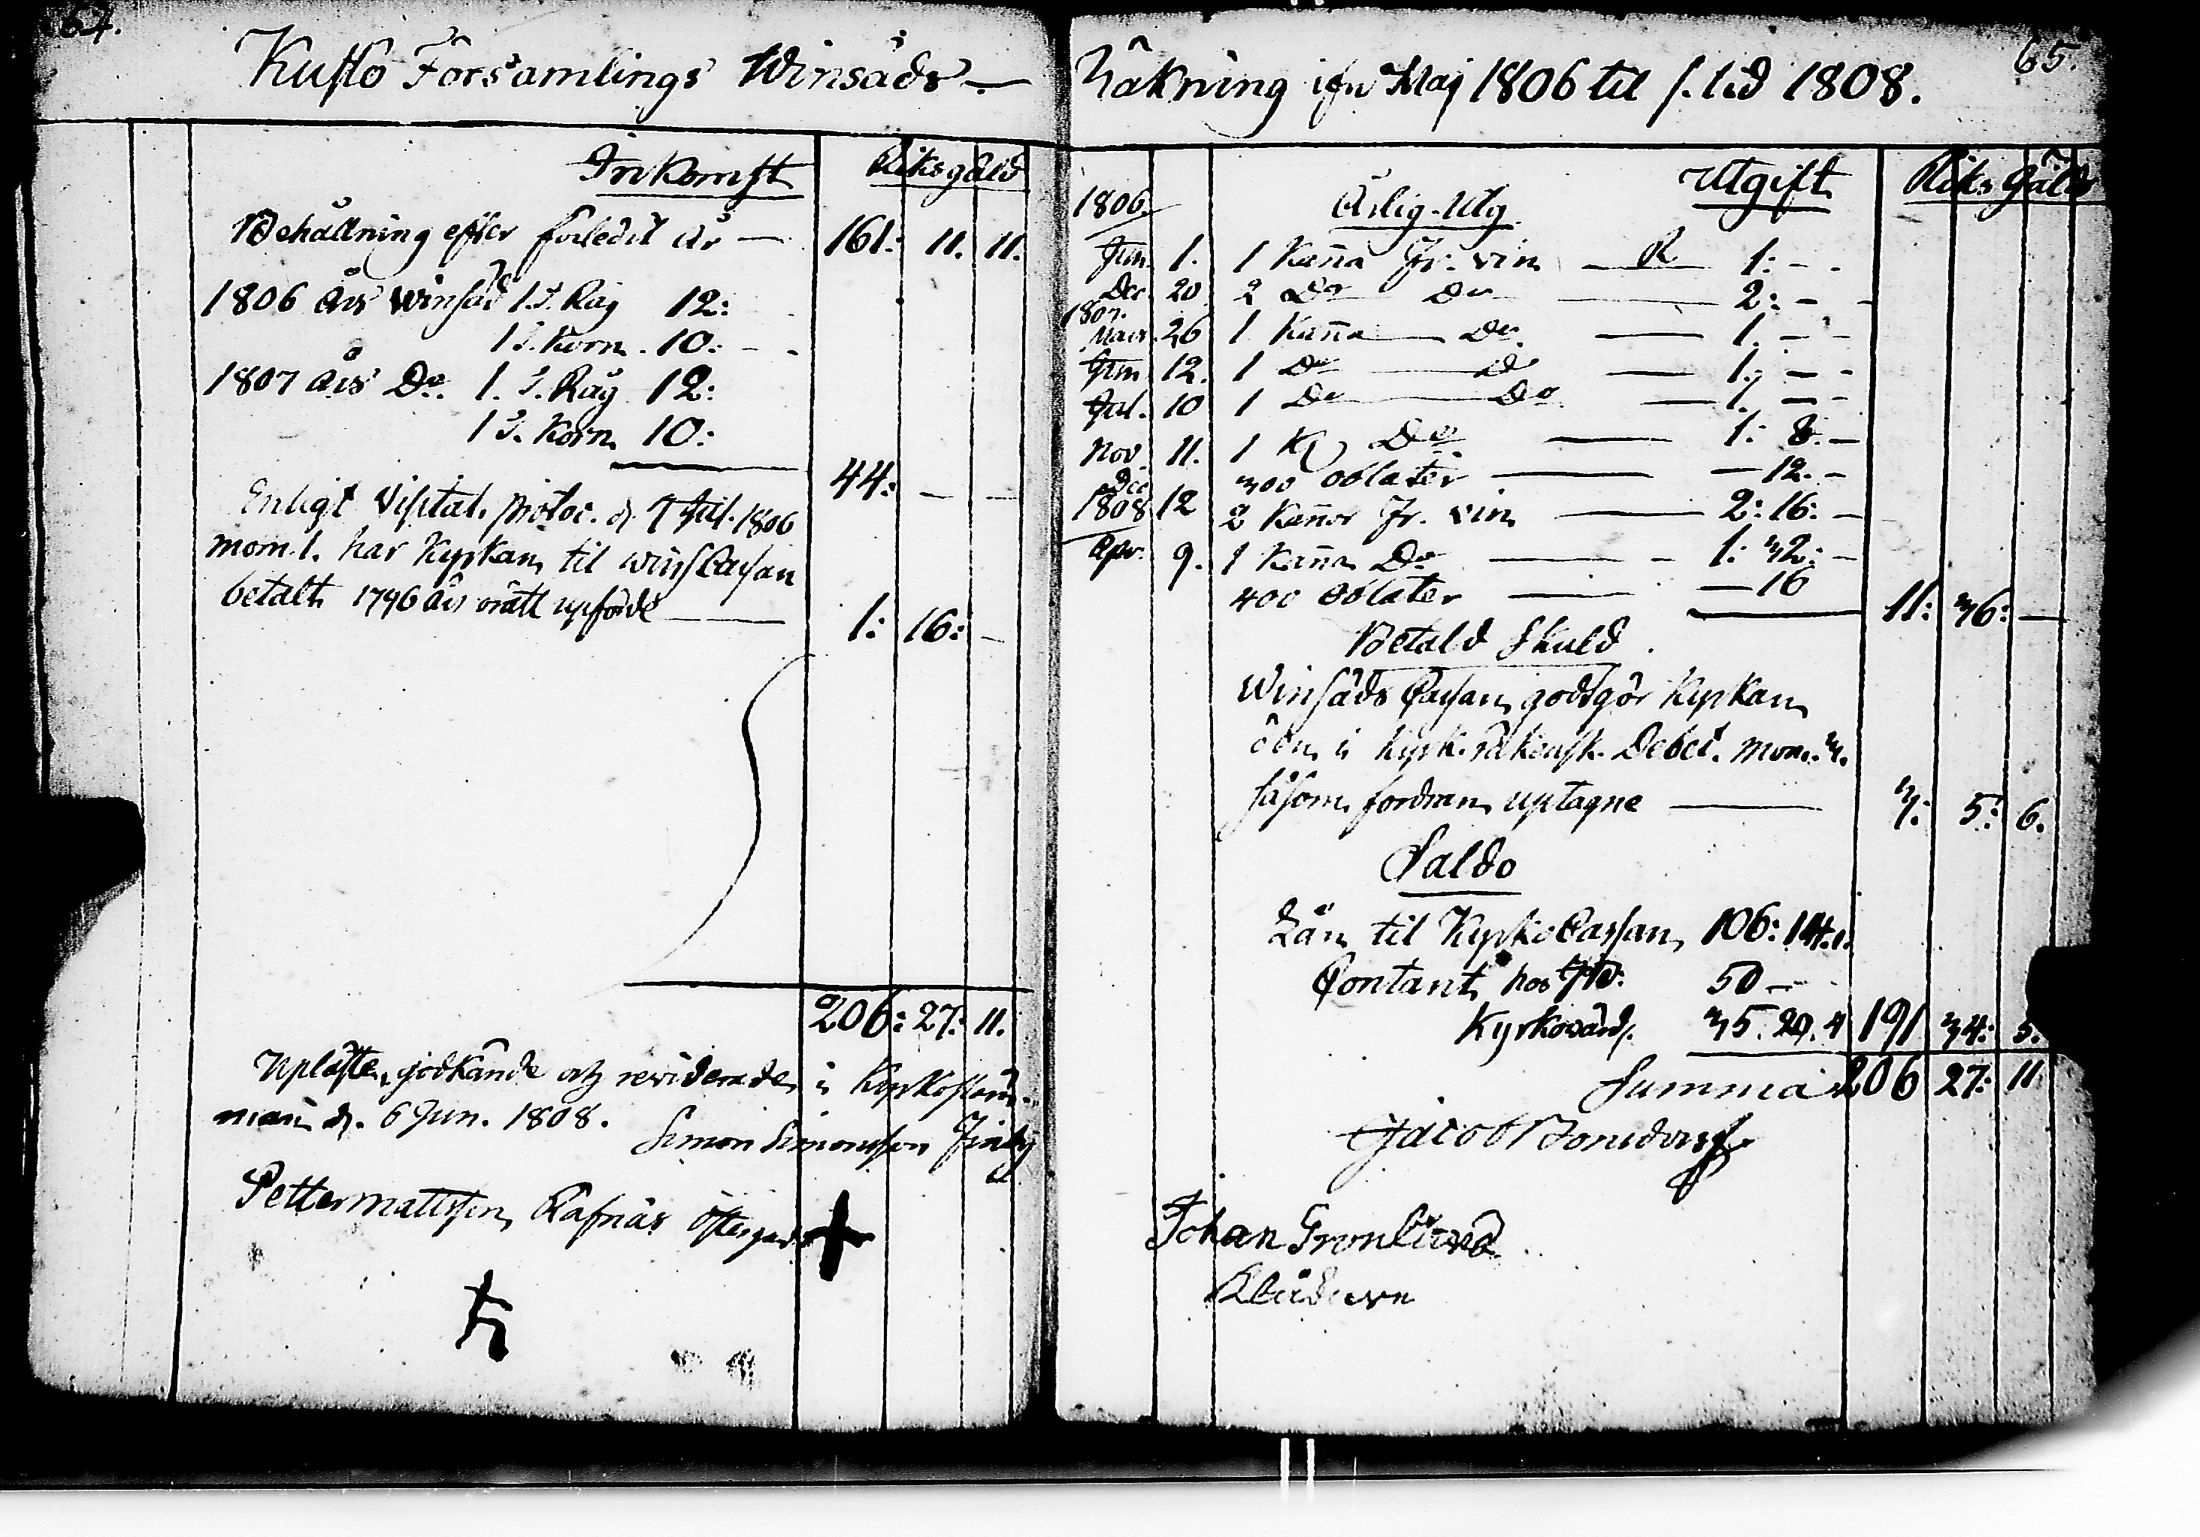 64.
Kustö Församlings Winsäds —
Inkomst Riksgäld
Behållning efter förledit år — 161: 11. 11.
1806 års winsäd 1 T. Råg 12:
1 T. Korn. 10: - -
1807 års Do. 1. T. Råg 12:
1 T. Korn 10:
44: — —
Enligt Visitat. protoc. d. 7 Jul. 1806
mom. 1. har Kyrkan til wins Cassan
betalt 1796 års orätt upförde — 1: 16: —
206: 27: 11.
Upläste, godkände och reviderade i Kyrkostäm-
man d. 6 Jun. 1808.
Simon Simonsson
Petter Mattsson Rafnäs Östergård
65.
Räkning ifrn Maj 1806 til s. tid 1808.
Utgift Riks Gäld
1806. Årlig. Utg.
Jun. 1. 1 Kanna Fr. vin — R 1: - -
Dec. 20 2 Do Do — 2: - -
1807.
Mars. 26 1 Kanna — Do. — 1. - -
Jun. 12. 1 Do — d — 1: - -
Jul. 10 1 Do — Do — 1. - -
Nov. 11. 1 K Do — 1: 8. -
Dec. 300 oblater — 12. -
1808 12 2 Kannor Fr. vin — 2: 16: -
Apr. 9. 1 Kanna Do — 1: 32: -
400 Oblater — 16 11: 36: —
Betald Skuld.
Winsäds Cassan godtgör Kyrkan
den i Kyrk. räkensk. Debet. mom. 3.
såsom fordran uptagne — 3: 5: 6.
Saldo
Lån til Kyrko Cassan 106: 14. 1.
Contant hos 50 —
Kyrkovärd. 35. 20. 4 191 34: 5.
Summa 206 27: 11
Jacob Bonsdorff
Johan Grönlund